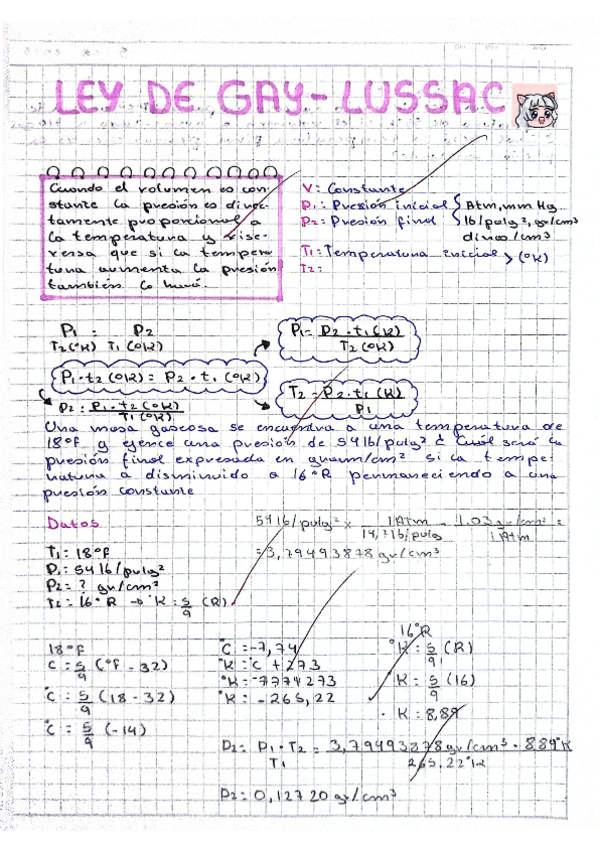 LEY DE GAY-LUSSAC
Cuando el volumen es con-
stante la presión es direc-
tamente proporcional a
la temperatura y vise-
versa que si la tempera
tura aumenta la presión
también lo hará.
V: Constante
P1: Presión inicial
P2: Presión final
Atm, mm Hg
lb/pulg², gr/cm³
dinas/cm³
T1: Temperatura inicial > (°K)
T2:
P1 : P2
T2(°K) T1(°K)
P1 = P2 · t1(K)
T2(°K)
P1 · t2(°K) = P2 · t1(°K)
P2 : P1 · T2(°K)
T1(°K)
T2 = P2 · t1(K)
P1
Una masa gaseosa se encuentra a una temperatura de
18°F y ejerce una presión de 54 lb/pulg² ¿Cuál será la
presión final expresada en /cm² si la tempe-
ratura a disminuido a 16°R permaneciendo a una
presión constante
Datos
T1: 18°F
P1: 54 lb/pulg²
P2 = ? gr/cm²
T2: 16°R → °K : 5/9 (R)
54 lb/pulg² x 1 Atm · 1.03 gr/cm² =
14,7 lb/pulg 1 Atm
= 3,79493878 gr/cm³
18°F
C = 5/9 (°F - 32)
°C : 5/9 (18 - 32)
°C : 5/9 (-14)
°C = -7,74
°K = °C + 273
°K = -7774273
°K = -265,22
16°R
°K : 5/9 (R)
K : 5/9 (16)
K : 8,89
P2: P1 · T2 = 3,79493878 gr/cm³ · 8.89°K
T1 265.22°K
P2 = 0,12720 gr/cm³